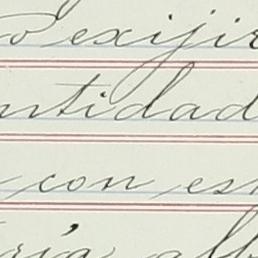 exijir
ntidad
con es
ria alb